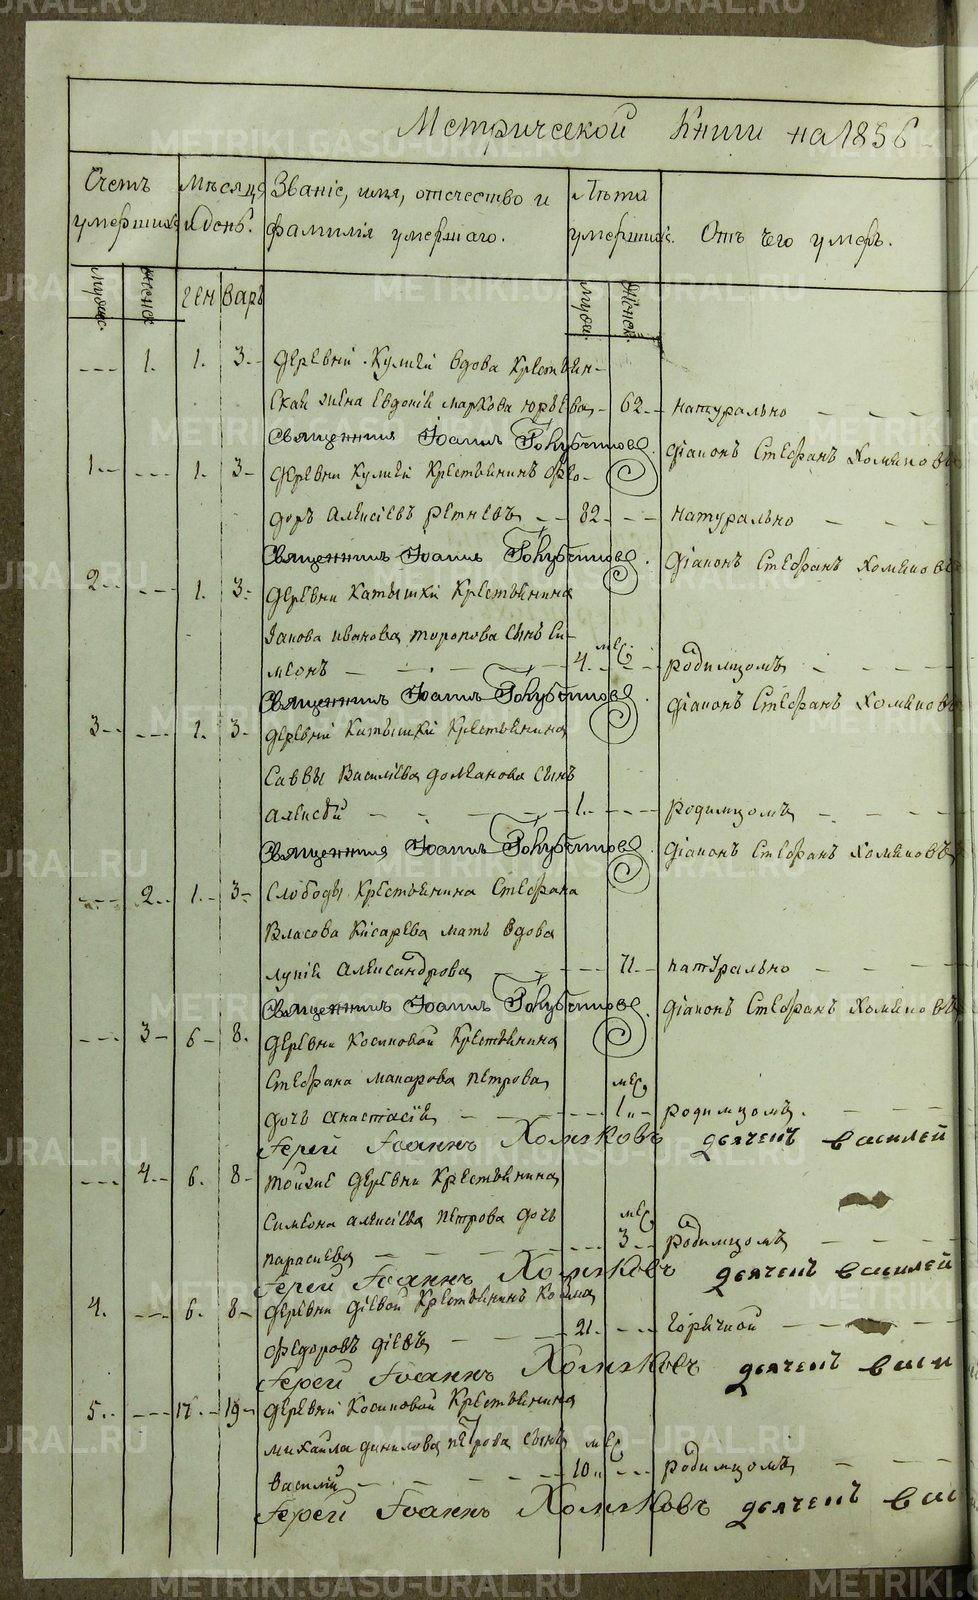 Метрической Книги на 1856
Счетъ умершихъ
Мѣсяцъ и день.
Званіе, имя, отечество и фамилія умершаго.
Лѣта умершихъ.
Отъ чего умеръ.
Мужес. Женск. Ген варь Мужи. Женск.
--- 1. 1. 3. деревни Кулики вдова крестьян-
ская жена Евдокія Маркова Юрьева 62. натурально
Священникъ Іоаннъ Діаконъ Стефанъ Хомяковъ
1. --- 1. 3. деревни Кулики крестьянинъ Фео-
доръ Алексіевъ 82 натурально
Священникъ Іоаннъ Діаконъ Стефанъ Хомяковъ
2. --- 1. 3. деревни Катышки крестьянина
Іакова Иванова Торопова сынъ Си-
меонъ 4. мес. родимцомъ
Священникъ Іоаннъ Діаконъ Стефанъ Хомяковъ
3. --- 1. 3. деревни Катышки крестьянина
Саввы Василіева сынъ
Алексѣй 1. родимцомъ
Священникъ Іоаннъ Діаконъ Стефанъ Хомяковъ
--- 2. 1. 3. Слободы крестьянина Стефана
Власова Кисарева мать вдова
Александрова 71. натурально
Священникъ Іоаннъ Діаконъ Стефанъ Хомяковъ
--- 3. 6. 8. деревни Косиковой крестьянина
Стефана Макарова Петрова
дочь Анастасія 1. мес. родимцомъ.
Іерей Іоаннъ Хомяковъ дьячекъ Василей
--- 4. 6. 8. тойже деревни крестьянина
Симеона Алексіева Петрова дочь
Параскева 3. мес. родимцомъ
Іерей Іоаннъ Хомяковъ дьячекъ Василей
4. --- 6. 8. деревни Діевой крестьянинъ Козма
Федоровъ Діевъ 21. горячкой
Іерей Іоаннъ Хомяковъ дьячекъ Васи
5. --- 17. 19. деревни Косиковой крестьянина
Михаила Данилова Петрова сынъ
Василій 10 мес. родимцомъ
Іерей Іоаннъ Хомяковъ дьячекъ Васи
METRIKI.GASO-URAL.RU